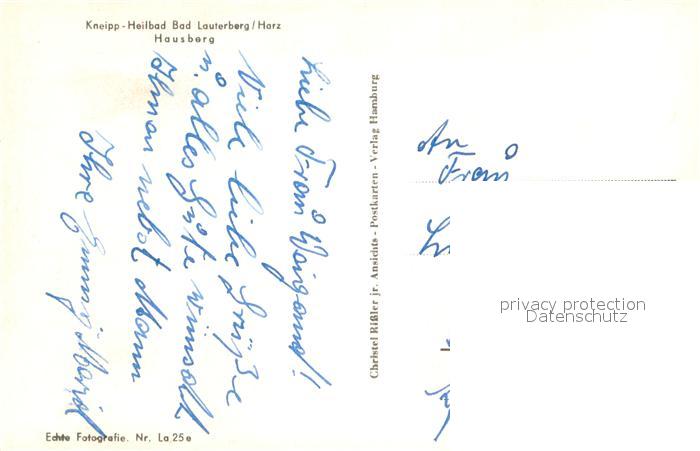 Kneipp-Heilbad Bad Lauterberg/Harz
Hausberg
Liebe Frau Weigand!
Viele liebe Grüße
u. alles Gute wünscht
Ihnen nebst Mann
Ihre Emmy
Echte Fotografie. Nr. La 25e
Christel Rißler jr. Ansichts-Postkarten-Verlag Hamburg
An
Frau
privacy protection
Datenschutz